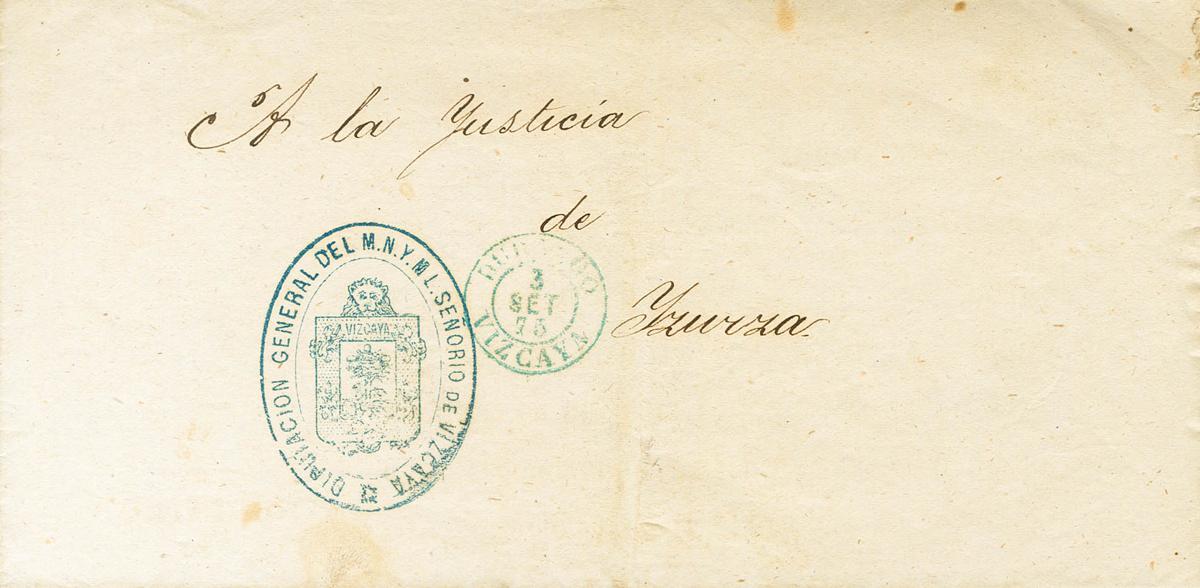 A la Yusticia
de
Yzurza
DIPUTACION GENERAL DEL M.N.Y.M L. SEÑORIO DE VIZCAYA
VIZCAYA
3
SET
75
VIZCAYA